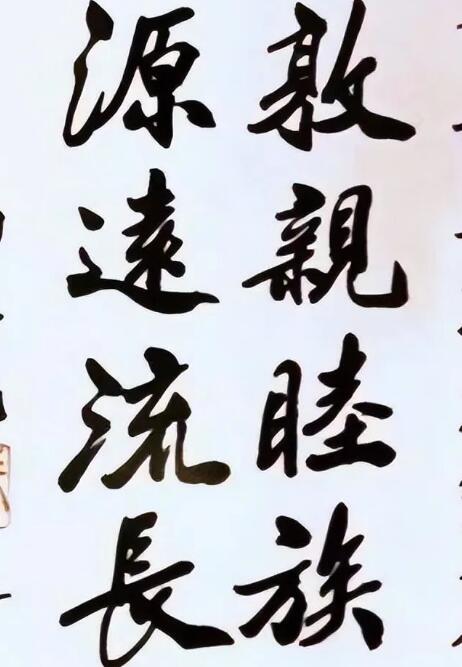 敦親睦族
源遠流長